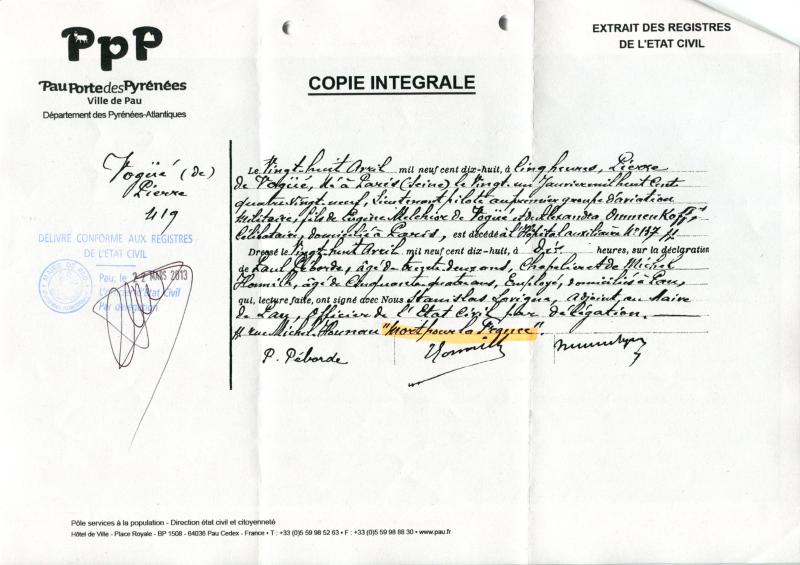 PpP
Pau Porte des Pyrénées
Ville de Pau
Département des Pyrénées-Atlantiques
EXTRAIT DES REGISTRES
DE L'ETAT CIVIL
COPIE INTEGRALE
Vogüé (de)
Pierre
419
DÉLIVRÉ CONFORME AUX REGISTRES
DE L'ETAT CIVIL
Pau, le 22 MARS 2013
L'Officier de l'Etat Civil
Par délégation
MAIRIE DE PAU
Le Vingt-huit Avril mil neuf cent dix-huit, à Cinq heures, Pierre
de Vogüé, né à Paris (Seine) le Vingt-un Janvier mil huit Cent
quatre Vingt-neuf, Lieutenant pilote au premier groupe d'aviation
Militaire, fils de Eugène Melchior de Vogüé et de Alexandra
Célibataire, domicilié à Paris, est décédé à l'Hôpital auxiliaire N° 147
Dressé le Vingt-huit Avril mil neuf cent dix-huit, à Dix heures, sur la déclaration
de Paul Péborde, âgé de trente-deux ans, Chapelier et de Michel
âgé de Cinquante-quatre ans, Employé, domiciliés à Pau,
qui, lecture faite, ont signé avec Nous Stanislas Lavigne, Adjoint au Maire
de Pau, Officier de l'Etat Civil par délégation.
rue Michel Hounau "Mort pour la France"
P. Péborde
Pôle services à la population - Direction état civil et citoyenneté
Hôtel de Ville - Place Royale - BP 1508 - 64036 Pau Cedex - France • T : +33 (0)5 59 98 52 63 • F : +33 (0)5 59 98 88 30 • www.pau.fr